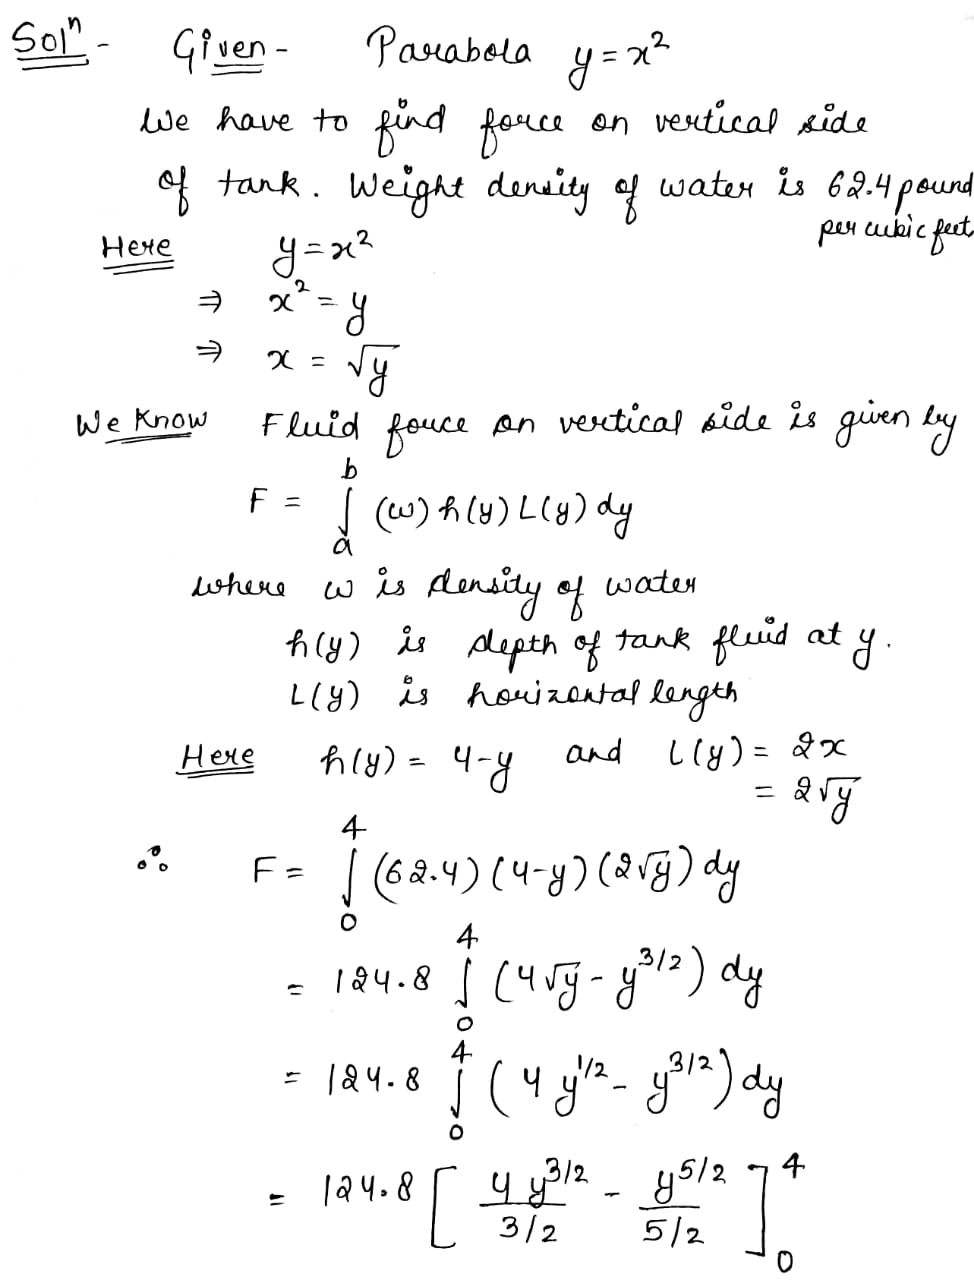 Solⁿ - Given - Parabola y = x²
We have to find force on vertical side
of tank. Weight density of water is 62.4 pound
per cubic feet
Here y = x²
⇒ x² = y
⇒ x = √y
We Know Fluid force on vertical side is given by
F = ∫ₐᵇ (ω) h(y) L(y) dy
where ω is density of water
h(y) is depth of tank fluid at y.
L(y) is horizontal length
Here h(y) = 4-y and L(y) = 2x
= 2√y
∴ F = ∫₀⁴ (62.4) (4-y) (2√y) dy
= 124.8 ∫₀⁴ (4√y - y^(3/2)) dy
= 124.8 ∫₀⁴ (4 y^(1/2) - y^(3/2)) dy
= 124.8 [ (4 y^(3/2))/(3/2) - (y^(5/2))/(5/2) ]₀⁴